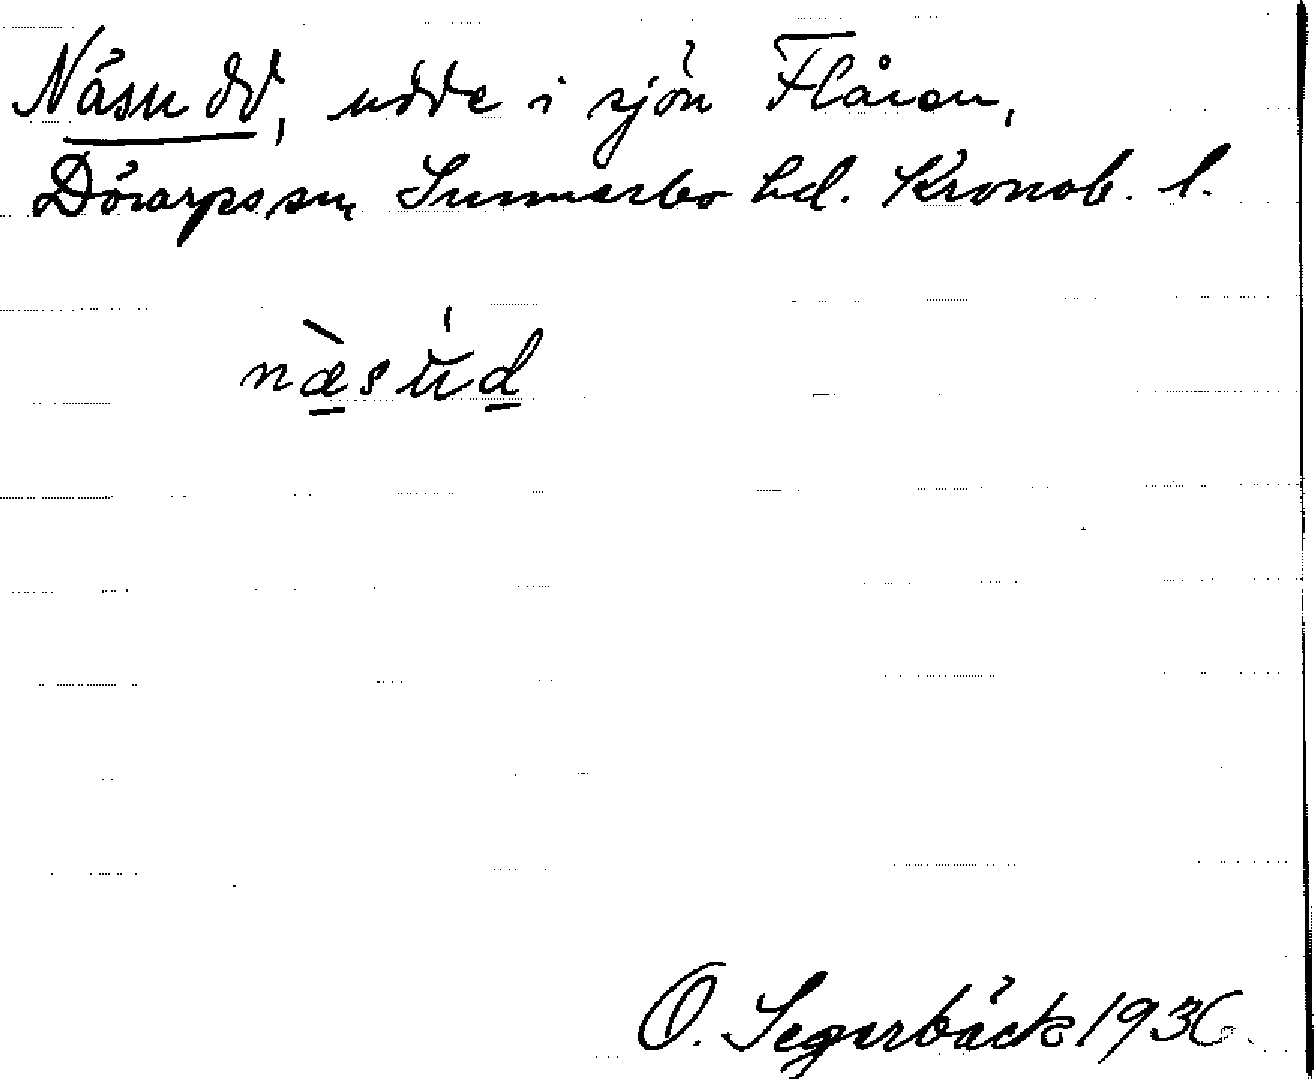 Näsudd, udde i sjön Flåren,
Dörarps sn, Sunnerbo hd. Kronob. l.
næ̀sŭ́d
O. Segerbäck 1936.